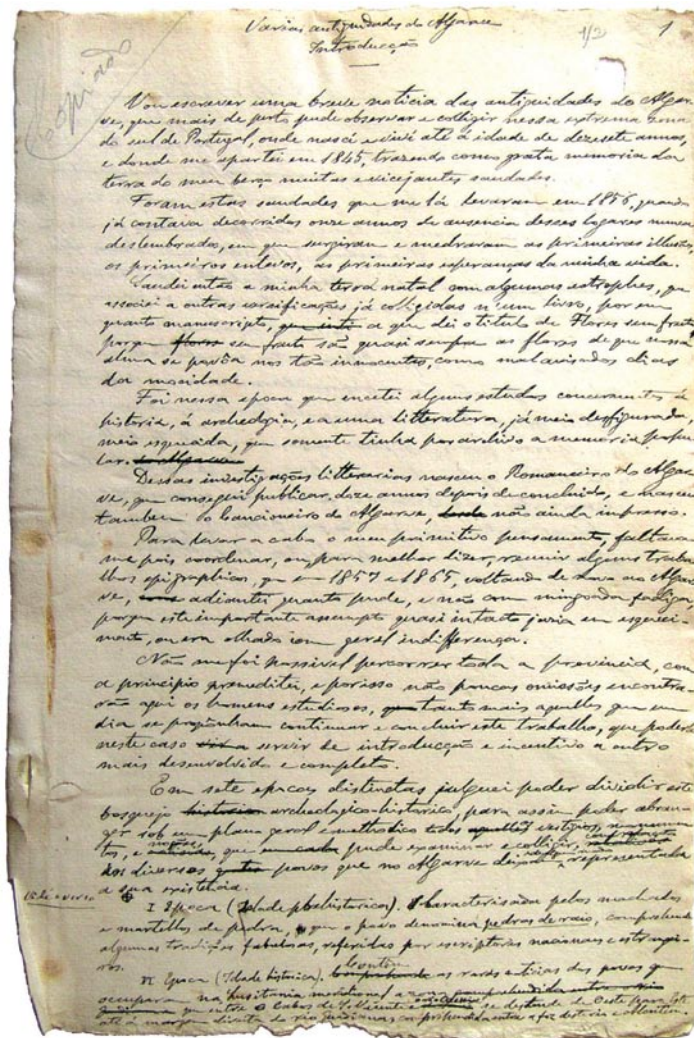 Varias antiguidades do Algarve
1/2
1
Introducção
Copiado
Vou escrever uma breve noticia das antiguidades do Algar-
ve, que mais de perto pude observar e colligir nessa extrema zona
do sul de Portugal, onde nasci e vivi até á idade de dezesete annos,
e donde me apartei em 1845, trazendo como grata memoria da
terra do meu berço muitas e vicejantes saudades.
Foram estas saudades que me lá levaram em 1856, quando
já contava decorridos onze annos de ausencia desses logares nunca
deslembrados, em que surgiram e medraram as primeiras illusões,
os primeiros enlevos, as primeiras esperanças da minha vida.
Saudei então a minha terra natal com algumas estrophes, que
associei a outras versificações já colligidas n'um livro, por em
quanto manuscripto, a que dei o titulo de Flores sem fructo
porque flores sem fruto são quasi sempre as flores de que nossa
alma se povôa nos tão innocentes, como malavisados dias
da mocidade.
Foi nessa epoca que encetei alguns estudos concernentes á
historia, á archeologia, e a uma litteratura, já meio desfigurada,
meio esquecida, que somente tinha por archivo a memoria popu-
lar.
Dessas investigações litterarias nasceu o Romanceiro do Algar-
ve, que consegui publicar doze annos depois de concluido, e nasceu
tambem o Cancioneiro do Algarve, não ainda impresso.
Para levar a cabo o meu primitivo pensamento, faltava-
me pois coordenar, ou para melhor dizer, reunir alguns traba-
lhos epigraphicos, que em 1857 e 1865, voltando de novo ao Algar-
ve, adiantei quanto pude, e não com minguada fadiga,
porque este importante assumpto quasi intacto jazia em esqueci-
mento, ou era olhado com geral indifferença.
Não me foi possivel percorrer toda a provincia, como
a principio premeditei, e por isso não poucas omissões encontra-
rão aqui os homens estudiosos, tanto mais aquelles que um
dia se proponham continuar e concluir este trabalho, que poderá
neste caso servir de introducção e incentivo a outro
mais desenvolvido e completo.
Em sete epocas distinctas julguei poder dividir este
bosquejo archeologico-historico, para assim poder abran-
ger sob um plano geral e methodico todos vestigios, monumen-
tos, e noções, que pude examinar e colligir,
dos diversos povos que no Algarve representada
a sua existencia.
I Epoca (Idade prehistorica). Characterisada pelos machados
e martellos de pedra, a que o povo denomina pedras de raio, comprehende
algumas tradições fabulosas, referidas por escriptores nacionaes e estrangei-
ros.
II Epoca (Idade historica). Contém as raras noticias dos povos que
occuparam na Lusitania meridional a zona
que entre o Cabo de S. Vicente e se destende de Oeste para Este
até á margem direita do rio Guadiana, comprehendida entre a foz deste rio e Alcoutim.